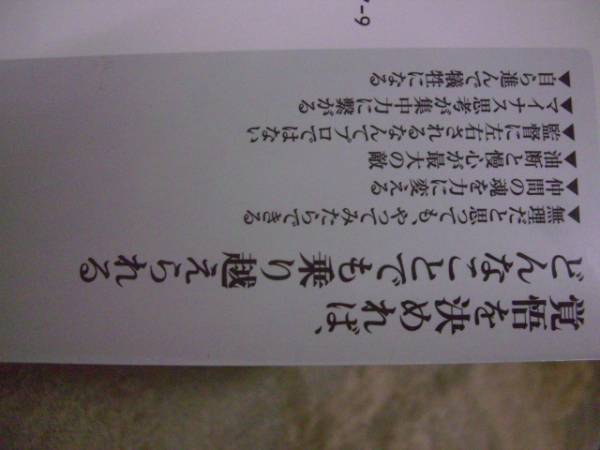 覚悟を決めれば、
どんなことでも乗り越えられる
▼無理だと思っても、やってみたらできる
▼仲間の魂を力に変える
▼油断と慢心が最大の敵
▼監督に左右されるなんてプロではない
▼マイナス思考が集中力に繋がる
▼自ら進んで犠牲になる
-9